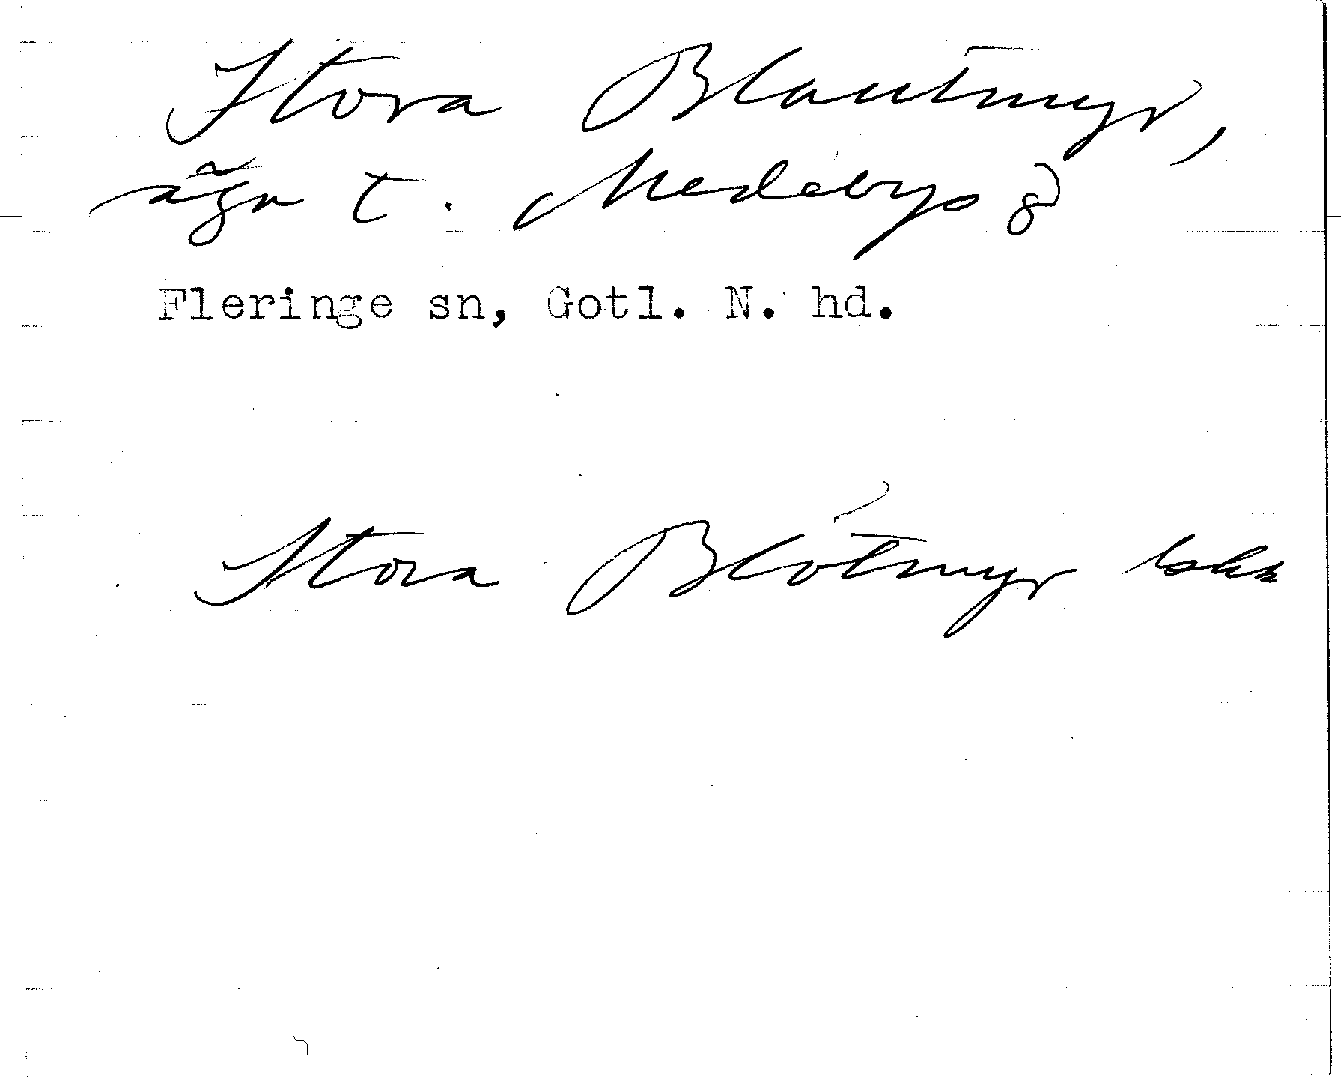 Stora Blautmyr,
äga t. Medebys 8
Fleringe sn, Gotl. N. hd.
Stora Blötmyr